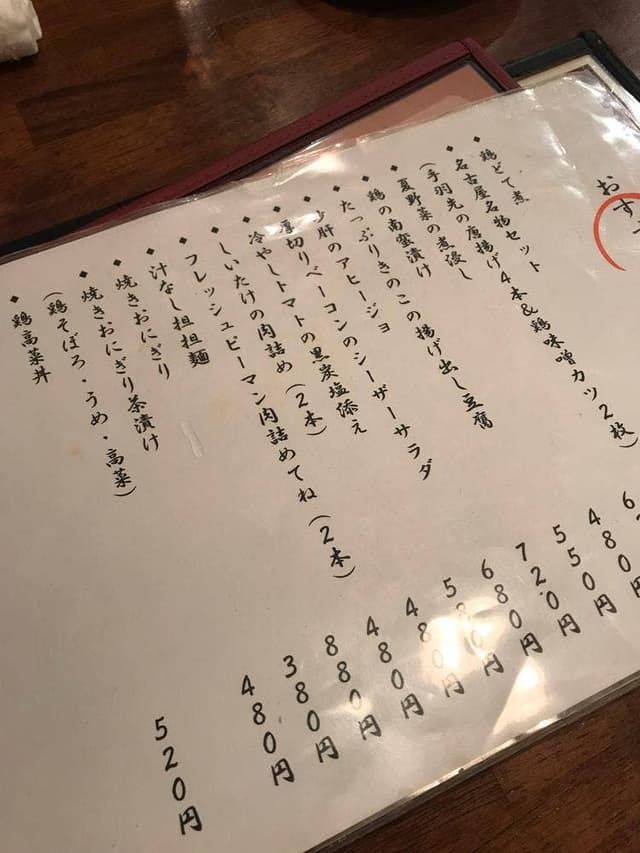 おす
鶏どて煮
名古屋名物セット
(手羽先の唐揚げ4本&鶏味噌カツ2枚)
夏野菜の煮浸し
鶏の南蛮漬け
たっぷりきのこの揚げ出し豆腐
砂肝のアヒージョ
厚切りベーコンのシーザーサラダ
冷やしトマトの黒炭塩添え
しいたけの肉詰め(2本)
フレッシュピーマン肉詰めてね(2本)
汁なし担担麺
焼きおにぎり
焼きおにぎり茶漬け
(鶏そぼろ・うめ・高菜)
鶏高菜丼
480円
550円
720円
680円
580円
480円
480円
880円
380円
480円
520円